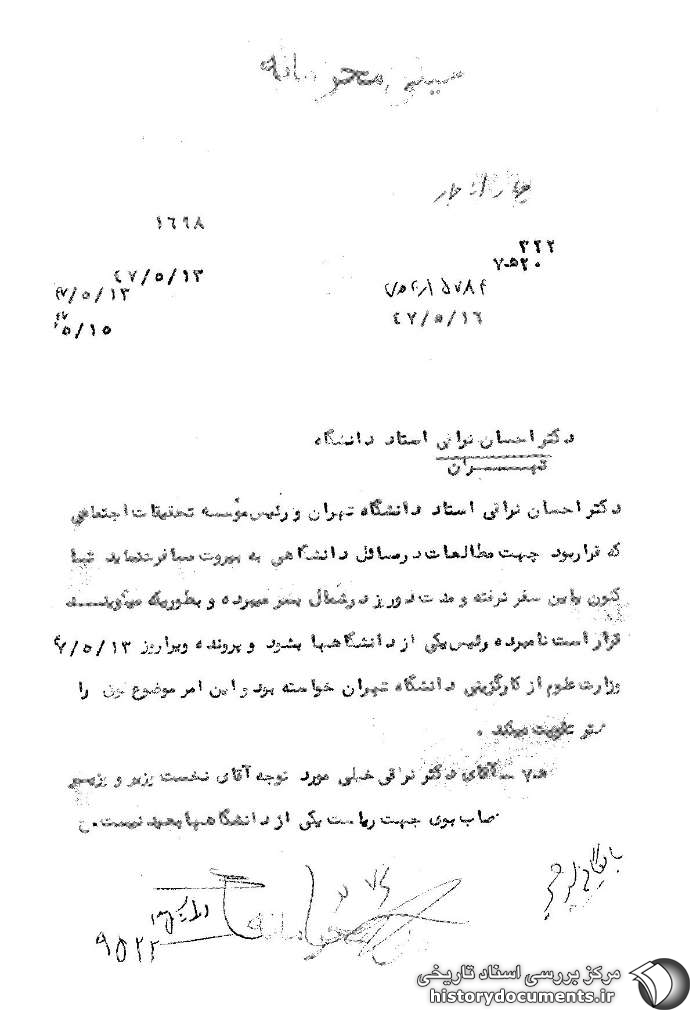 خیلی محرمانه
۱۶۹۸
۳۲۲
۲۰ﻫ۷
۴۷/۵/۱۳
۴۷/۵/۱۳
۵/۱۵
۴۷/۵/۱۶
دکتر احسان نراقی استاد دانشگاه
تهران
دکتر احسان نراقی استاد دانشگاه تهران و رئیس مؤسسه تحقیقات اجتماعی
که قرار بود جهت مطالعات در مسائل دانشگاهی به بیروت مسافرت نماید تا
کنون باین سفر نرفته و مدت دو روز در شمال بسر میبرده و بطوریکه میگویند
قرار است نامبرده رئیس یکی از دانشگاهها بشود و پرونده ویرا روز ۴۷/۵/۱۳
وزارت علوم از کارگزینی دانشگاه تهران خواسته بود و این امر موضوع فوق را
تقویت میکند .
ﻫ۷ ــ آقای دکتر نراقی خیلی مورد توجه آقای نخست وزیر و
وی جهت ریاست یکی از دانشگاهها بعید نیست. ح
بایگانی
محرمانه
۹۵۲۲
مرکز بررسی اسناد تاریخی
historydocuments.ir